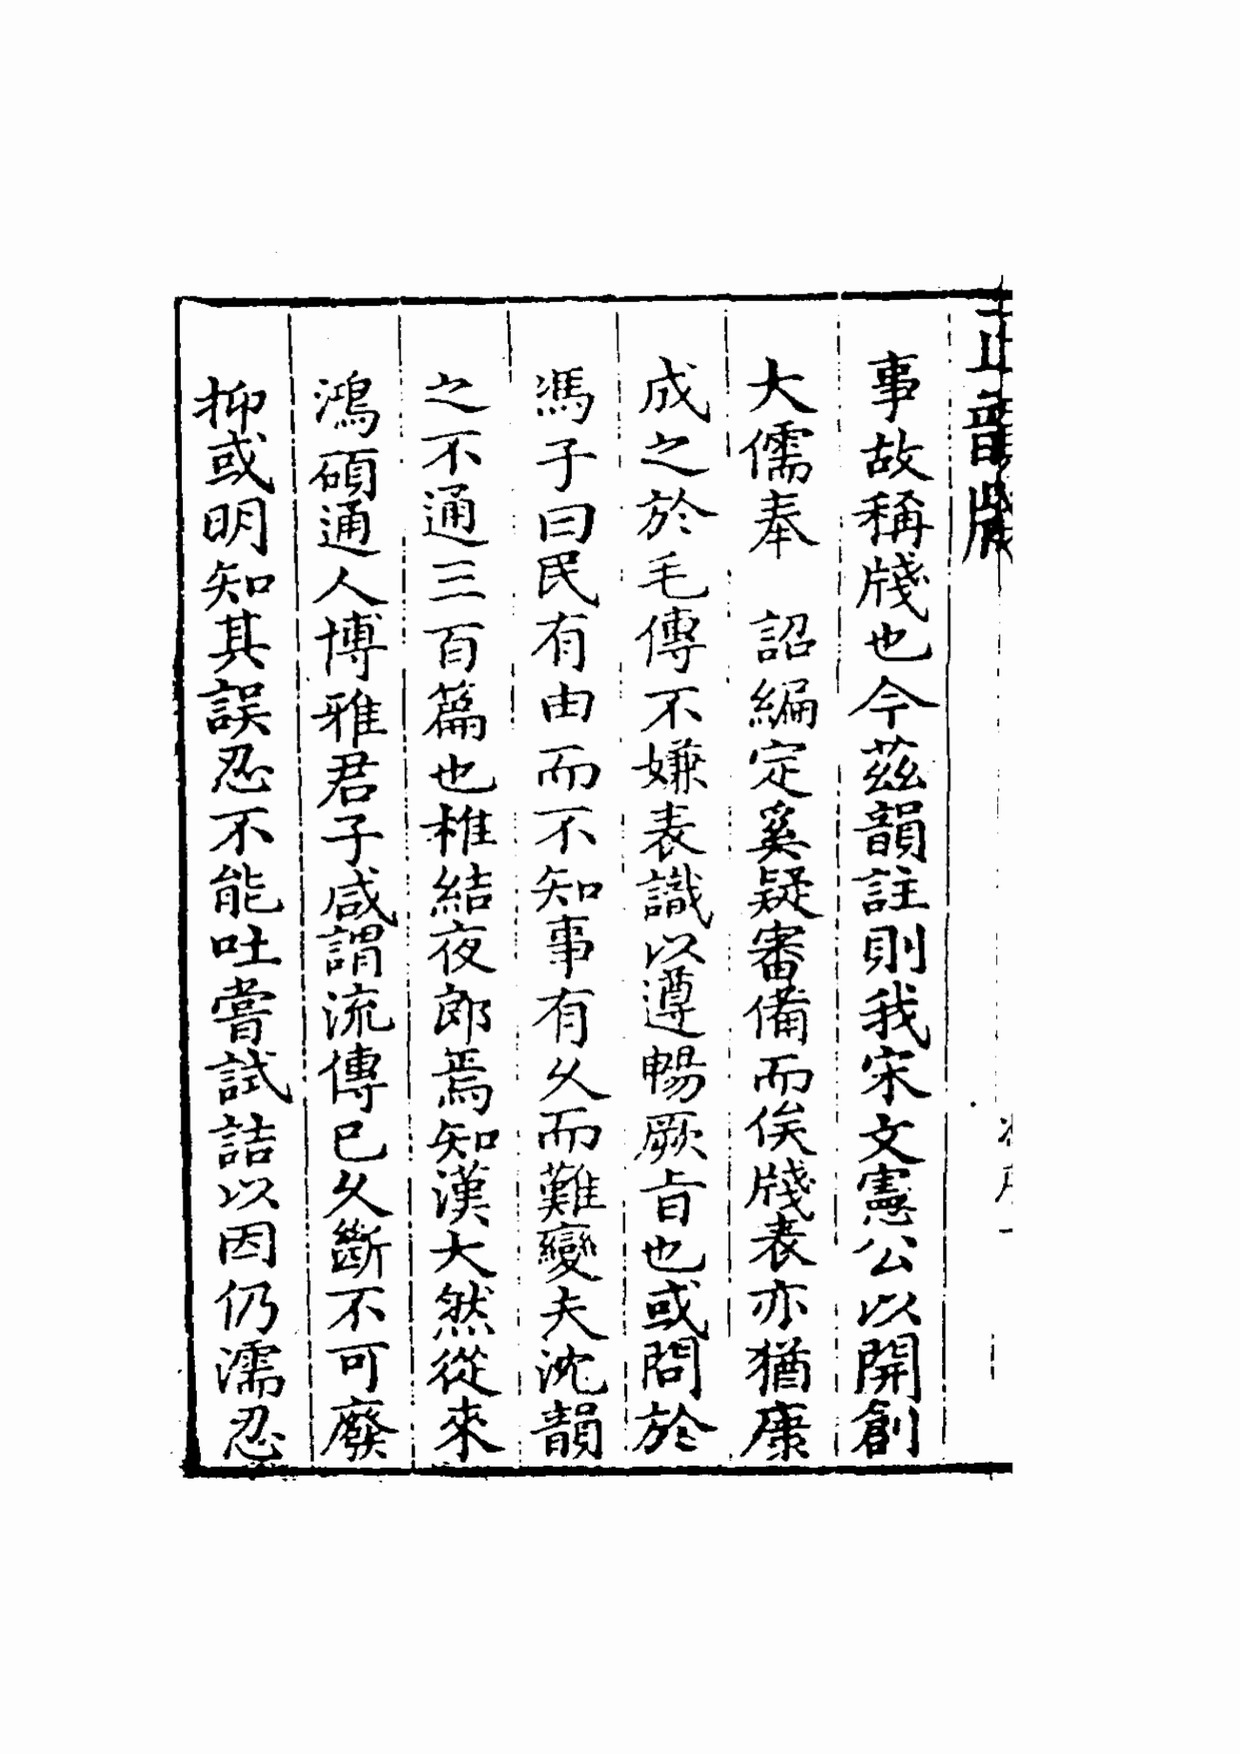 正音牋
事故稱牋也今茲韻註則我宋文憲公以開創
大儒奉　詔編定奚疑審備而俟牋表亦猶康
成之於毛傳不嫌表識以遵暢厥旨也或問於
馮子曰民有由而不知事有久而難變夫沈韻
之不通三百篇也椎結夜郎焉知漢大然從來
鴻碩通人博雅君子咸謂流傳已久斷不可廢
抑或明知其誤忍不能吐嘗試詰以因仍濡忍